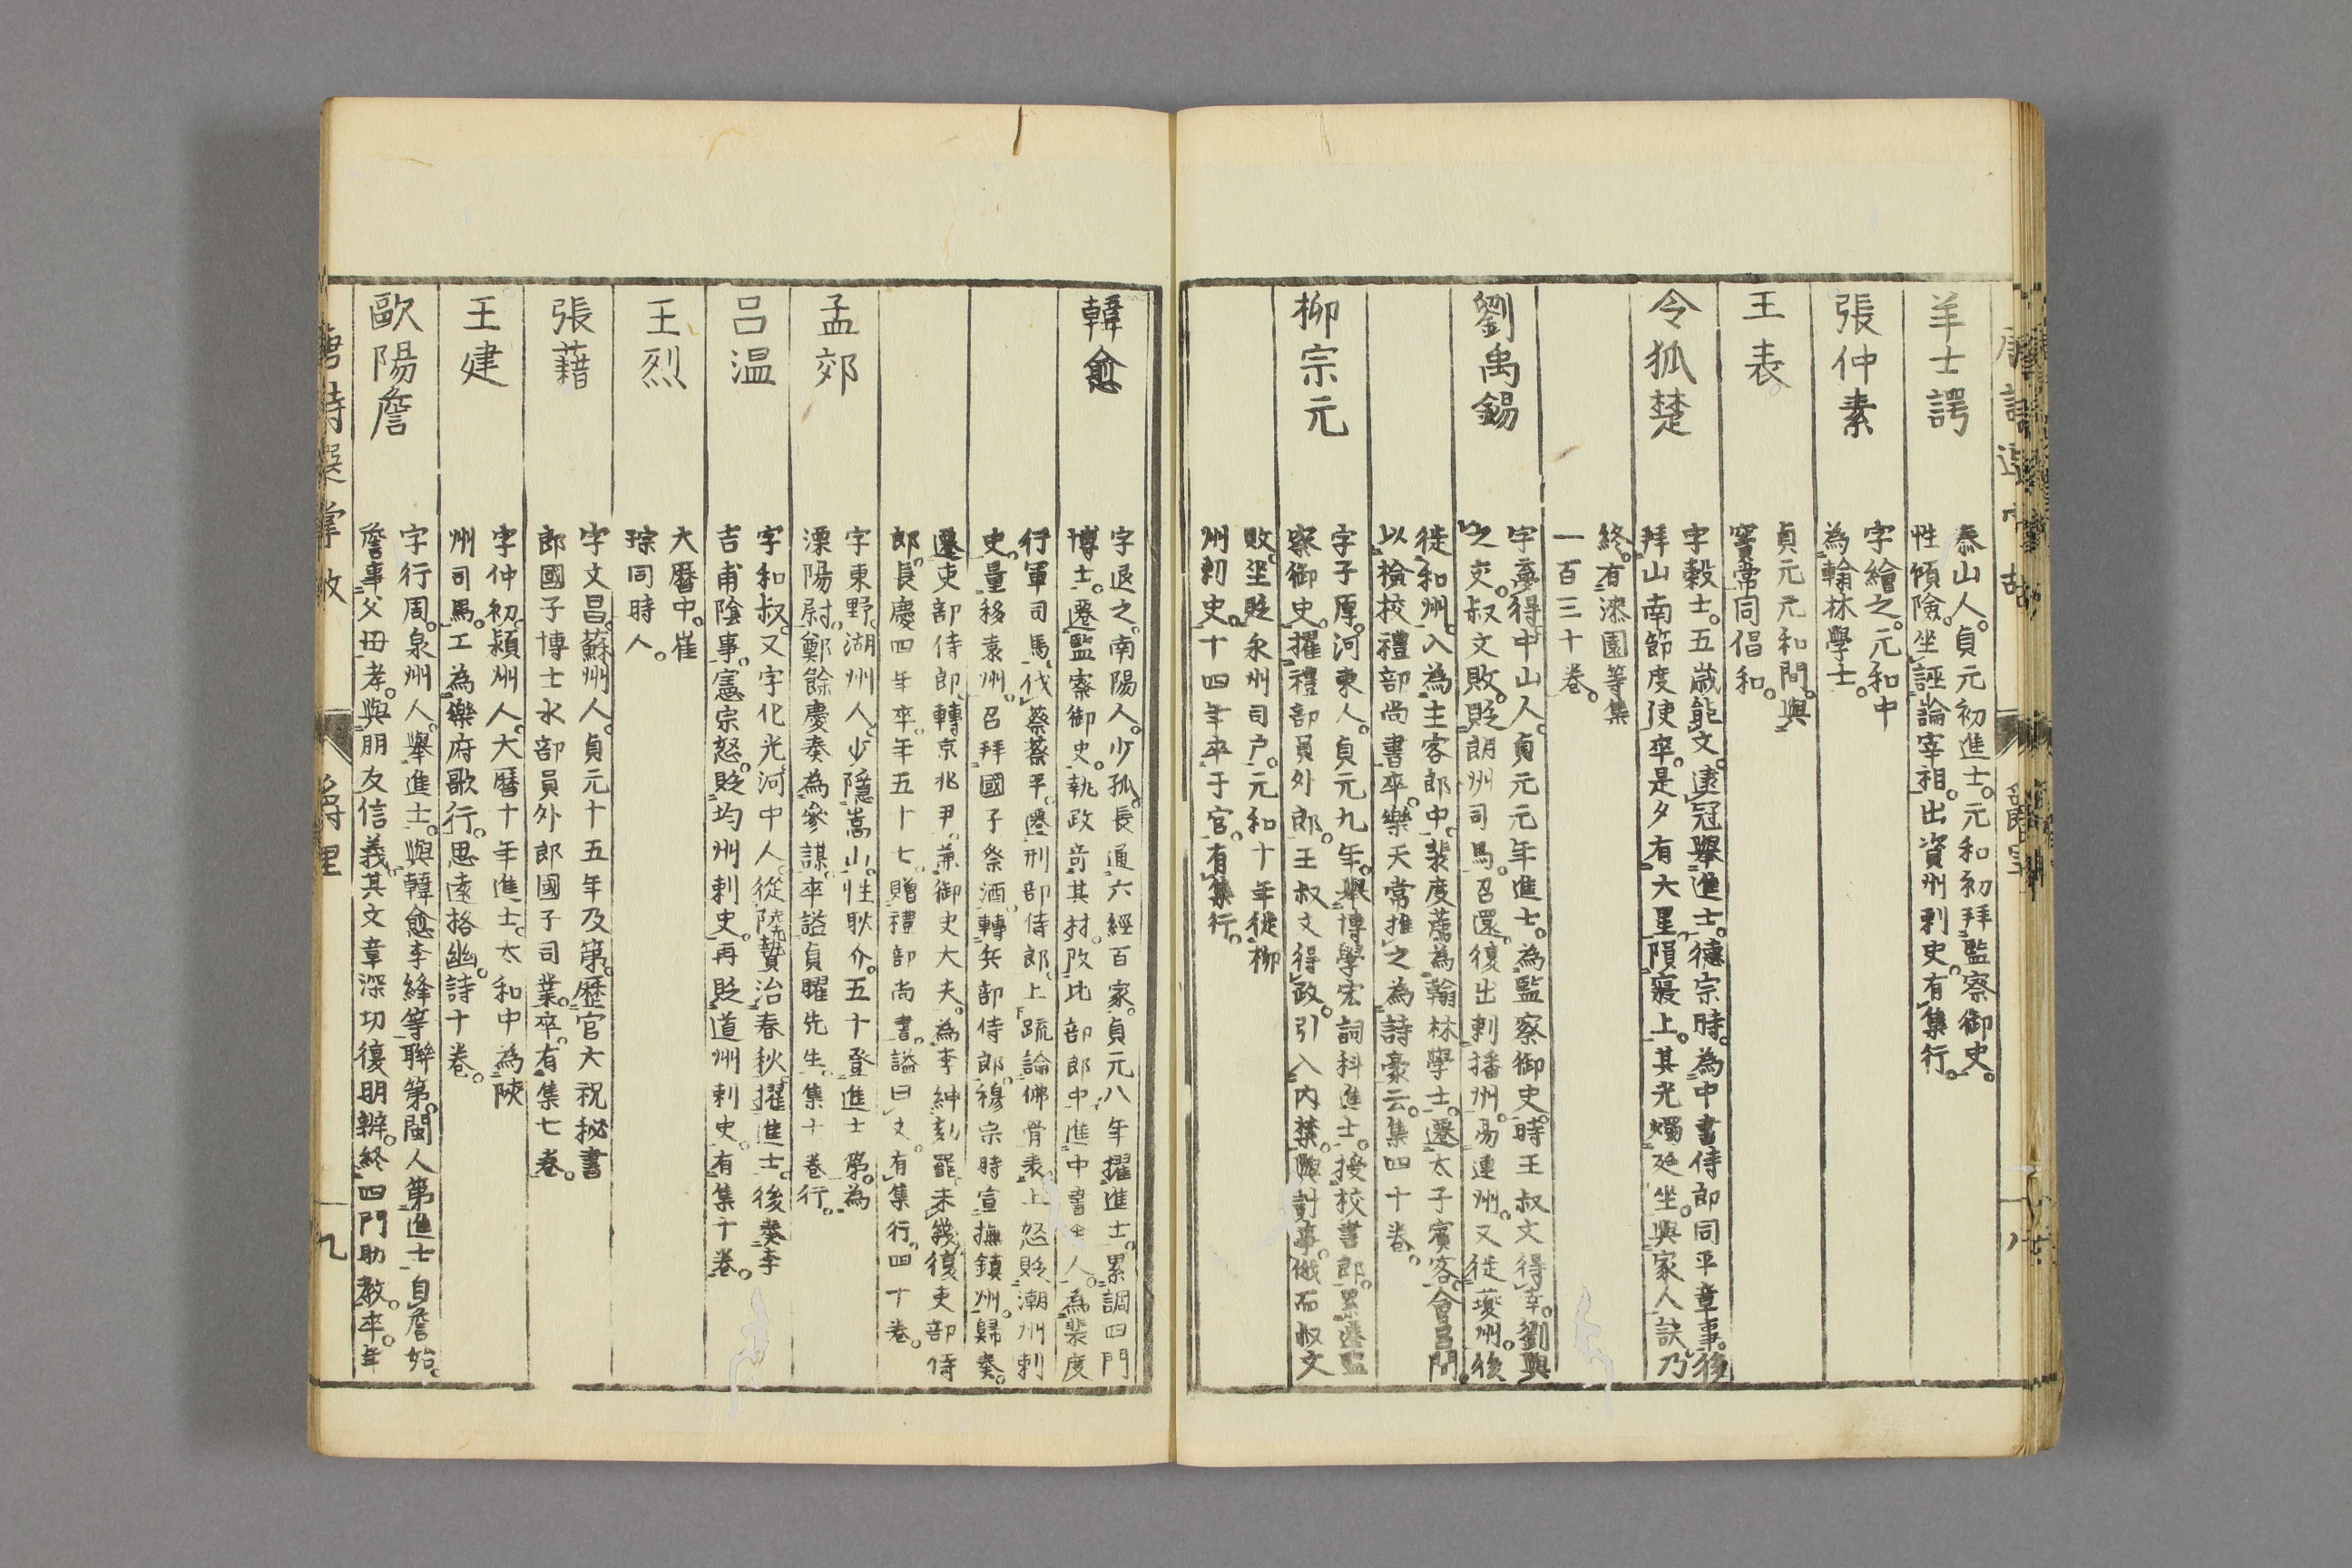 羊士諤
泰山人。貞元初進士。元和初拜監察御史。
性傾險。坐誣論宰相。出資州刺史。有集行。
張仲素
字繪之。元和中
為翰林學士。
王表
貞元元和間。與
竇常同倡和。
令狐楚
字殻士。五歳能文。逮冠擧進士。德宗時。為中書侍郎同平章事。後
拜山南節度使卒。是夕有大星。隕寢上。其光燭廷坐。與家人訣。乃
終。有漆園等集
一百三十卷。
劉禹錫
字夢得。中山人。貞元元年進士。為監察御史。時王叔文得幸。劉與
之交。叔文敗。貶朗州司馬。召還。復出刺播州。易連州。又徙夔州。後
徙和州。入為主客郎中。裴度薦為翰林學士。遷太子賓客。會昌間。
以檢校禮部尚書卒。樂天常推之為詩豪云。集四十卷。
柳宗元
字子厚。河東人。貞元九年。擧博學宏詞科進士。授校書郎。累遷監
察御史。擢禮部員外郎。王叔文得政。引入內禁。與計事。俄而叔文
敗。坐貶永州司户。元和十年徙柳
州刺史。十四年卒于官。有集行。
韓愈
字退之。南陽人。少孤。長通六經百家。貞元八年擢進士。累調四門
博士。遷監察御史。執政奇其材。改比部郎中。進中書舍人。為裴度
行軍司馬。代蔡蔡平。遷刑部侍郎。上疏論佛骨表。上怒貶潮州刺
史。量移袁州。召拜國子祭酒。轉兵部侍郎。穆宗時宣撫鎮州。歸奏。
遷吏部侍郎。轉京兆尹。兼御史大夫。為李紳劾罷。未幾復吏部侍
郎。長慶四年卒。年五十七。贈禮部尚書。謚曰文。有集行。四十卷。
孟郊
字東野。湖州人。少隱嵩山。性耿介。五十登進士第。為
溧陽尉。鄭餘慶奏為參謀。卒謚貞曜先生。集十卷行。
呂温
字和叔。又字化光。河中人。從陸贄治春秋。擢進士。後奏李
吉甫陰事。憲宗怒。貶均州刺史。再貶道州刺史。有集十卷。
王烈
大曆中。崔
琮同時人。
張藉
字文昌。蘇州人。貞元十五年及第。歴官大祝秘書
郎國子博士水部員外郎國子司業。卒。有集七卷。
王建
字仲初。潁州人。大曆十年進士。太和中為陝
州司馬。工為樂府歌行。思遠格幽。詩十卷。
歐陽詹
字行周。泉州人。擧進士。與韓愈李絳等聯第。閩人第進士自詹始。
詹事父母孝。與朋友信義。其文章深切復明辨。終四門助教。卒。年
唐詩選掌故
爵里
九